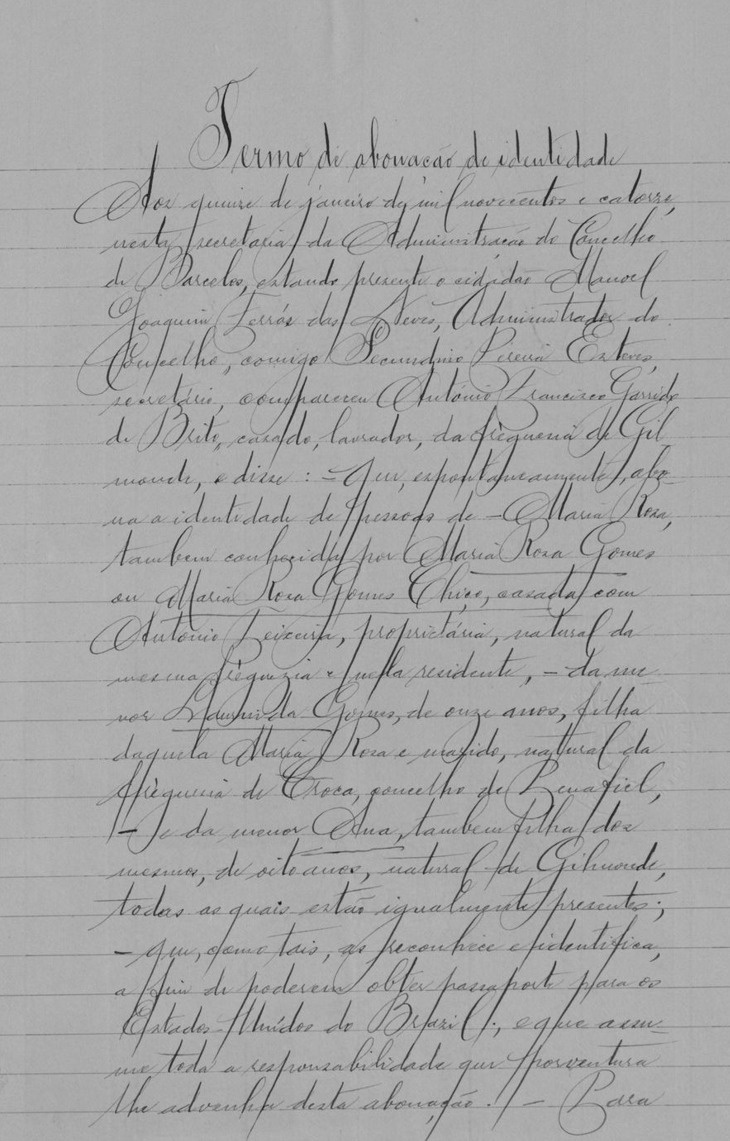 Termo de abonação de identidade
Aos quinze de janeiro de mil novecentos e catorze,
nesta secretaria da Administração do Concelho
de Barcelos, estando presente o cidadão Manoel
Joaquim Ferrás das Neves, Administrador do
Concelho, comigo Secundino Pereira Esteves,
secretário, compareceu António Francisco Garrido
de Brito, casado, lavrador, da freguesia de Gil
monde, e disse: - Que, espontaneamente, abo-
na a identidade de pessoas de - Maria Rosa,
tambem conhecida por Maria Rosa Gomes
ou Maria Rosa Gomes Chiço, casada com
António Teixeira, proprietária, natural da
mesma freguezia e nella residente, - da me
nor Gomes, de onze anos, filha
daquela Maria Rosa e marido, natural da
freguesia de Croca, concelho de Penafiel,
- e da menor Ana, tambem filha dos
mesmos, de oito anos, natural de Gilmonde,
todas as quais estão igualmente presentes;
- que, como tais, as reconhece e identifica,
a fim de poderem obter passaporte para os
Estados-Unidos do Brazil;, e que assu-
me toda a responsabilidade que porventura
lhe advenha desta abonação. - Para